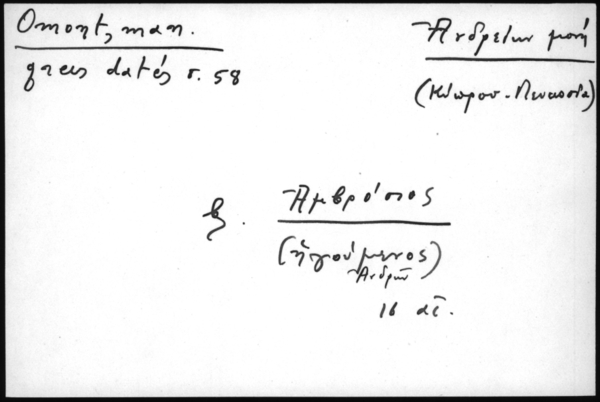 Omont, man.
grecs datés σ. 58
Ἀνδρείων μονή
(Κύπρου - Λευκωσία)
β.
Ἀμβρόσιος
(ἡγούμενος)
Ἀνδρῶν
16 αἰ.